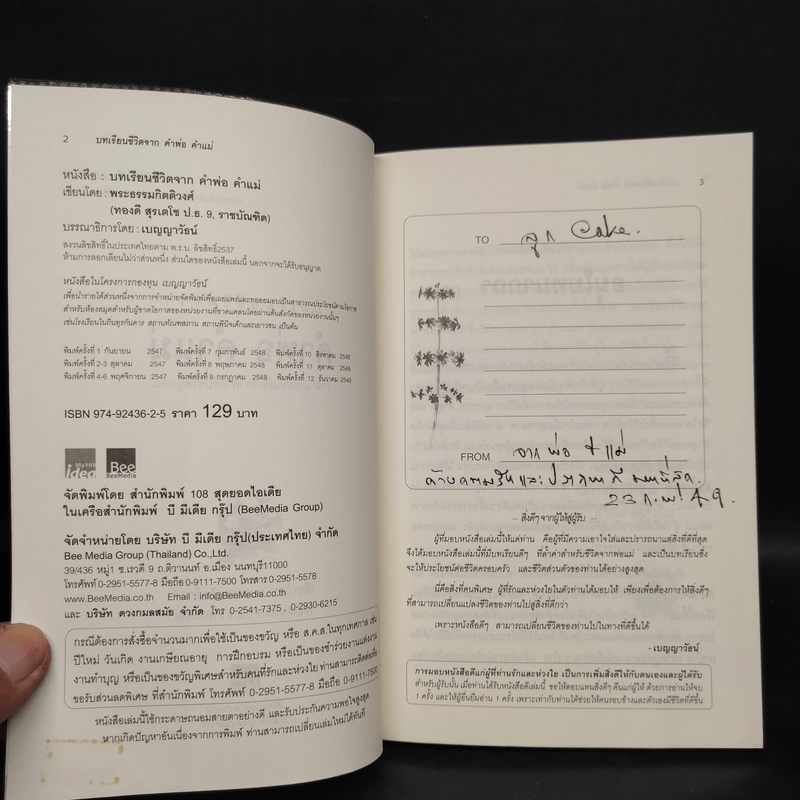 2 บทเรียนชีวิตจาก คำพ่อ คำแม่
หนังสือ : บทเรียนชีวิตจาก คำพ่อ คำแม่
เขียนโดย : พระธรรมกิตติวงศ์
(ทองดี สุรเตโช ป.ธ. 9, ราชบัณฑิต)
บรรณาธิการโดย : เบญญาวัธน์
สงวนลิขสิทธิ์ในประเทศไทยตาม พ.ร.บ. ลิขสิทธิ์2537
ห้ามการลอกเลียนไม่ว่าส่วนหนึ่ง ส่วนใดของหนังสือเล่มนี้ นอกจากจะได้รับอนุญาต
หนังสือในโครงการกองทุน เบญญาวัธน์
เพื่อนำรายได้ส่วนหนึ่งจากการจำหน่ายจัดพิมพ์เพื่อเผยแพร่และทยอยมอบเป็นสาธารณประโยชน์ตามโอกาส
สำหรับห้องสมุดสำหรับผู้ขาดโอกาสของหน่วยงานที่ขาดแคลนโดยผ่านต้นสังกัดของหน่วยงานนั้นๆ
เช่นโรงเรียนในถิ่นทุรกันดาร สถานทัณฑสถาน สถานพินิจเด็กและเยาวชน เป็นต้น
พิมพ์ครั้งที่ 1 กันยายน 2547 พิมพ์ครั้งที่ 7 กุมภาพันธ์ 2548 พิมพ์ครั้งที่ 10 สิงหาคม 2548
พิมพ์ครั้งที่ 2-3 ตุลาคม 2547 พิมพ์ครั้งที่ 8 พฤษภาคม 2548 พิมพ์ครั้งที่ 11 ตุลาคม 2548
พิมพ์ครั้งที่ 4-6 พฤศจิกายน 2547 พิมพ์ครั้งที่ 9 กรกฎาคม 2548 พิมพ์ครั้งที่ 12 ธันวาคม 2548
ISBN 974-92436-2-5 ราคา 129 บาท
My108 idea Bee BeeMedia
จัดพิมพ์โดย สำนักพิมพ์ 108 สุดยอดไอเดีย
ในเครือสำนักพิมพ์ บี มีเดีย กรุ๊ป (BeeMedia Group)
จัดจำหน่ายโดย บริษัท บี มีเดีย กรุ๊ป(ประเทศไทย) จำกัด
Bee Media Group (Thailand) Co.,Ltd.
39/436 หมู่1 ซ.เรวดี 9 ถ.ติวานนท์ อ.เมือง นนทบุรี11000
โทรศัพท์ 0-2951-5577-8 มือถือ 0-9111-7500 โทรสาร 0-2951-5578
www.BeeMedia.co.th Email : info@BeeMedia.co.th
และ บริษัท ดวงกมลสมัย จำกัด โทร 0-2541-7375, 0-2930-6215
กรณีต้องการสั่งซื้อจำนวนมากเพื่อใช้เป็นของขวัญ หรือ ส.ค.ส.ในทุกเทศกาล เช่น
ปีใหม่ วันเกิด งานเกษียณอายุ การฝึกอบรม หรือเป็นของชำร่วยงานแต่งงาน
งานทำบุญ หรือเป็นของขวัญพิเศษสำหรับคนที่รักและห่วงใย ท่านสามารถติดต่อเพื่อ
ขอรับส่วนลดพิเศษ ที่สำนักพิมพ์ โทรศัพท์ 0-2951-5577-8 มือถือ 0-9111-7500
หนังสือเล่มนี้ใช้กระดาษถนอมสายตาอย่างดี และรับประกันความพอใจสูงสุด
หากเกิดปัญหาอันเนื่องจากการพิมพ์ ท่านสามารถเปลี่ยนเล่มใหม่ได้ทันที
3
TO ลูก Cake.
FROM จาก พ่อ + แม่
ด้วยความรักและปรารถนาดี มากที่สุด.
23 ก.พ. 49.
– สิ่งดีๆ จากผู้ให้สู่ผู้รับ –
ผู้ที่มอบหนังสือเล่มนี้ให้แก่ท่าน คือผู้ที่มีความเอาใจใส่และปรารถนาแต่สิ่งที่ดีที่สุด
จึงได้มอบหนังสือเล่มนี้ที่มีบทเรียนดีๆ ที่ล้ำค่าสำหรับชีวิตจากพ่อแม่ และเป็นบทเรียนซึ่ง
จะให้ประโยชน์ต่อชีวิตครอบครัว และชีวิตส่วนตัวของท่านได้อย่างสูงสุด
นี่คือสิ่งที่คนพิเศษ ผู้ที่รักและห่วงใยในตัวท่านได้มอบให้ เพียงเพื่อต้องการให้สิ่งดีๆ
ที่สามารถเปลี่ยนแปลงชีวิตของท่านไปสู่สิ่งที่ดีกว่า
เพราะหนังสือดีๆ สามารถเปลี่ยนชีวิตของท่านไปในทางที่ดีขึ้นได้
- เบญญาวัธน์
การมอบหนังสือดีแก่ผู้ที่ท่านรักและห่วงใย เป็นการเพิ่มสิ่งดีให้กับตนเองและผู้ได้รับ
สำหรับผู้รับนั้น เมื่อท่านได้รับหนังสือดีเล่มนี้ ขอให้ตอบแทนสิ่งดีๆ คืนแก่ผู้ให้ ด้วยการอ่านให้จบ
1 ครั้ง และให้ผู้อื่นยืมอ่าน 1 ครั้ง เพราะเท่ากับท่านได้ช่วยให้คนรอบข้างและตัวเองมีชีวิตที่ดีขึ้น